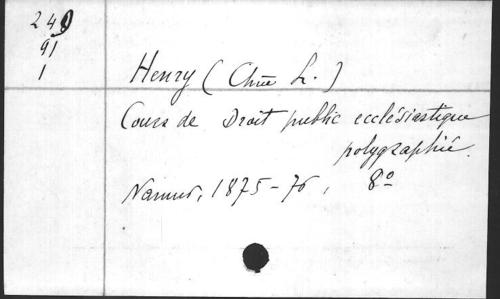 249
91
1
Henry (Chne L.)
Cours de Droit public ecclésiastique
polygraphié.
Namur, 1875-76, 8º